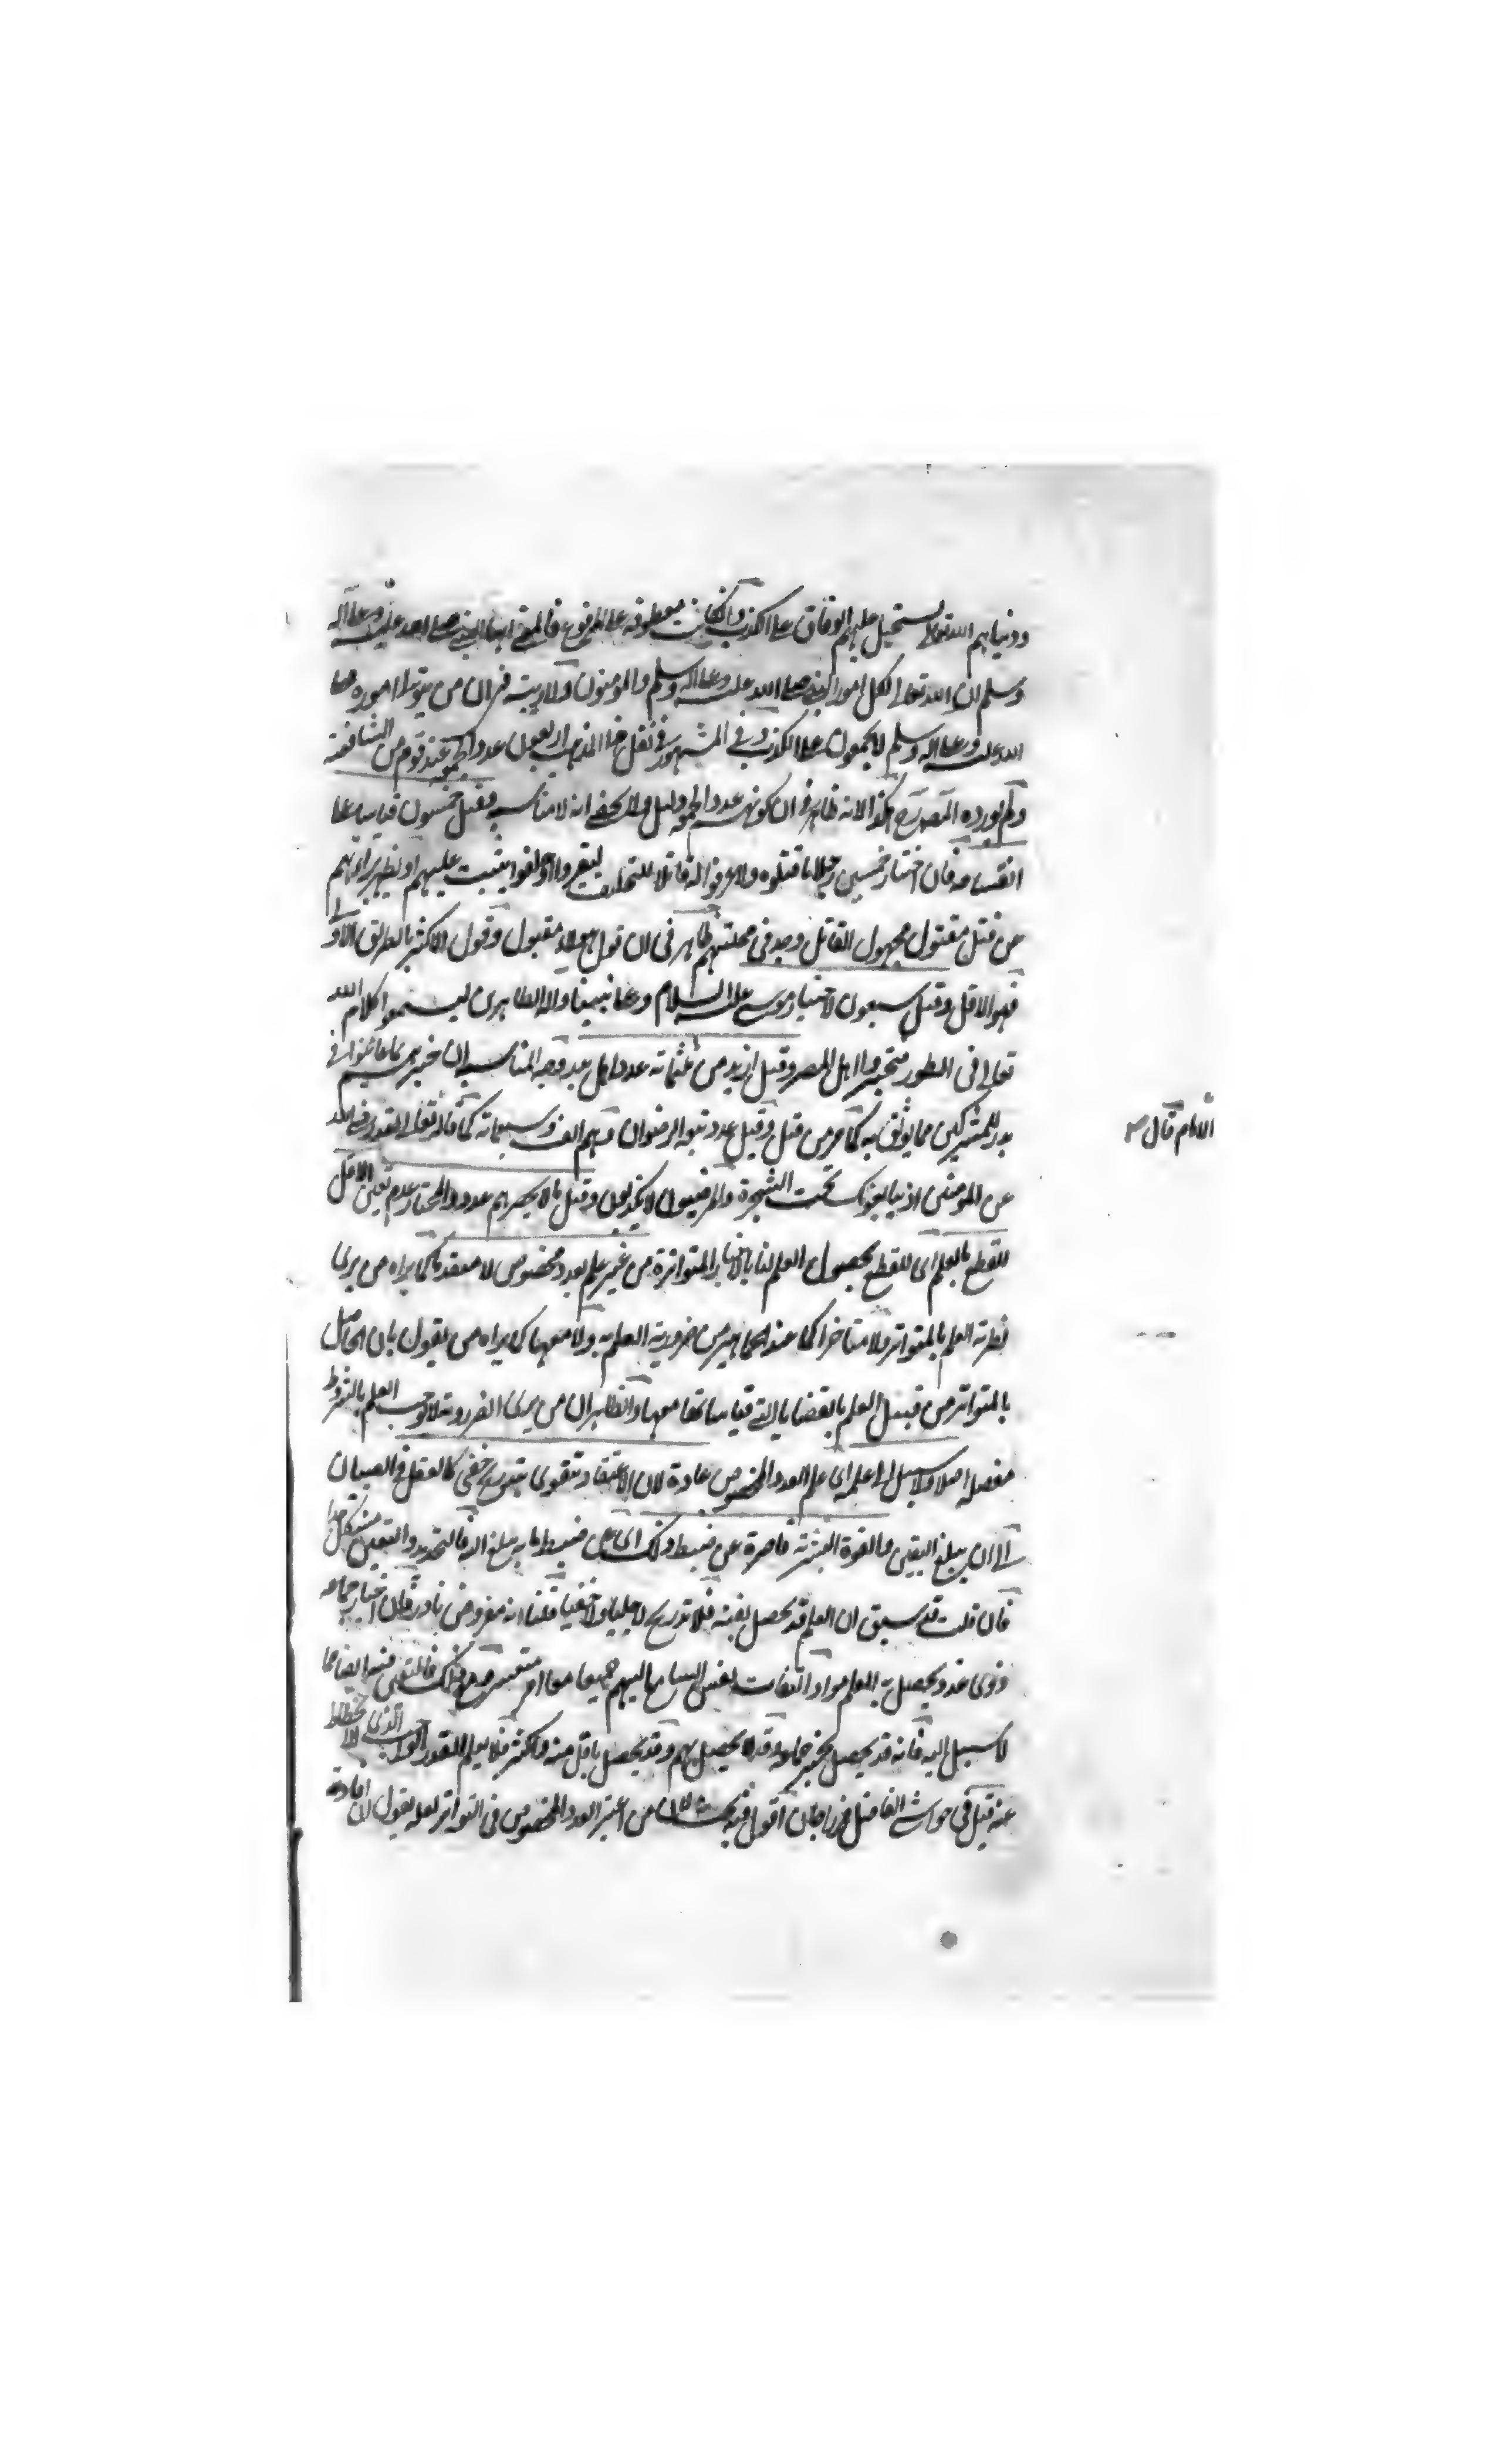 ودنياهم الله تعالى يستحيل عليهم الوفاق على الكذب وان كانت معطوفة على المرفوع فالمعنى ايها النبي صلى الله عليه وعلى آله
وسلم ان الله تعالى لكل امور النبي صلى الله عليه وعلى اله وسلم والمؤمنون ولا ريبة في ان من يتولى اموره صلى
الله عليه وعلى اله وسلم لا يجمعون على الكذب وفي المشهور في نقل هذا المذهب اربعون عدد الجمعة عند قوم من الشافعية
ولم يورده المصرح هكذا لانه ظاهر في ان كونه عدد الجمعة دليل ولا يخفى انه لا مناسبة وقيل خمسون قياسا على
القسامة فان اختار خمسين رجلا ما قتلوه ولا عرفوا له قاتلا للتحليف ليقروا او يحلفوا يثبت عليهم او يظهر براءتهم
عن قتل مقتول مجهول القاتل وجد في محلتهم ظاهر في ان قول هؤلاء مقبول وقول الاكثر بالطريق الاولى
فهو الاقل وقيل سبعون لاختيار موسى عليه السلام وعلى نبينا واله الطاهرين ليسمعوا كلام الله
تعالى في الطور فيخبروا اهل المصر وقيل ازيد من ثلثمائة عدد اهل بدر وجه المناسبة ان خبرهم بما عاينوا في
بدر للمشركين مما يوثق به كما مر من قبل وقيل عدد بيعة الرضوان وهم الف وسبعمائة كما قال تعالى لقد رضي الله
عن المؤمنين اذ يبايعونك تحت الشجرة والمرضيون لا يكذبون وقيل ما لا يحصرهم عدد والمختار عدم تعين الاقل
للقطع بالعلم اي للقطع بحصول العلم لنا بالاخبار المتواترة من غير علم بعدد مخصوص لا متقدما كما يراه من يرى
نظرية العلم بالمتواتر ولا متاخرا كما عند الجماهير من ضرورية العلم به ولا معه كما يراه من يقول بان الحاصل
بالمتواتر من قبيل العلم بالقضايا التي قياساتها معها والظاهر ان من يرى الضرورية لا يوجب العلم بالشروط
مفصلة اصلا ولا سبيل الى علمه اي علم العدد المخصوص عادة لان الاعتقاد يتقوى بتدريج خفي كالعقل في الصبيان
الى ان يبلغ اليقين والقوة البشرية قاصرة عن ضبط ذلك اي عن ضبط ما به مبلغ اليه فالتحديد والتعيين مشكل جدا
فان قلت قد سبق ان العلم قد يحصل بغتة فلا تدريج لا جليا ولا خفيا قلنا انه مفروض نادر فان اخبار جماعة
ذوي عدد يحصل به العلم مرادا لتفات نفس السامع اليهم جميعا معا امر متعسر ومع ذلك فالتعين فيه ايضا مما
لا سبيل اليه فانه قد يحصل بخبر جماعة وقد لا يحصل بهم وقد يحصل باقل منه واكثر فلا يعلم القدر الواجب الذي لا انحطاط
عنه قيل في حواشي الفاضل مرزاجان اقول فيه بحث لان من اعتبر العدد المخصوص في التواتر لعله يقول ان افادة
الامام قال